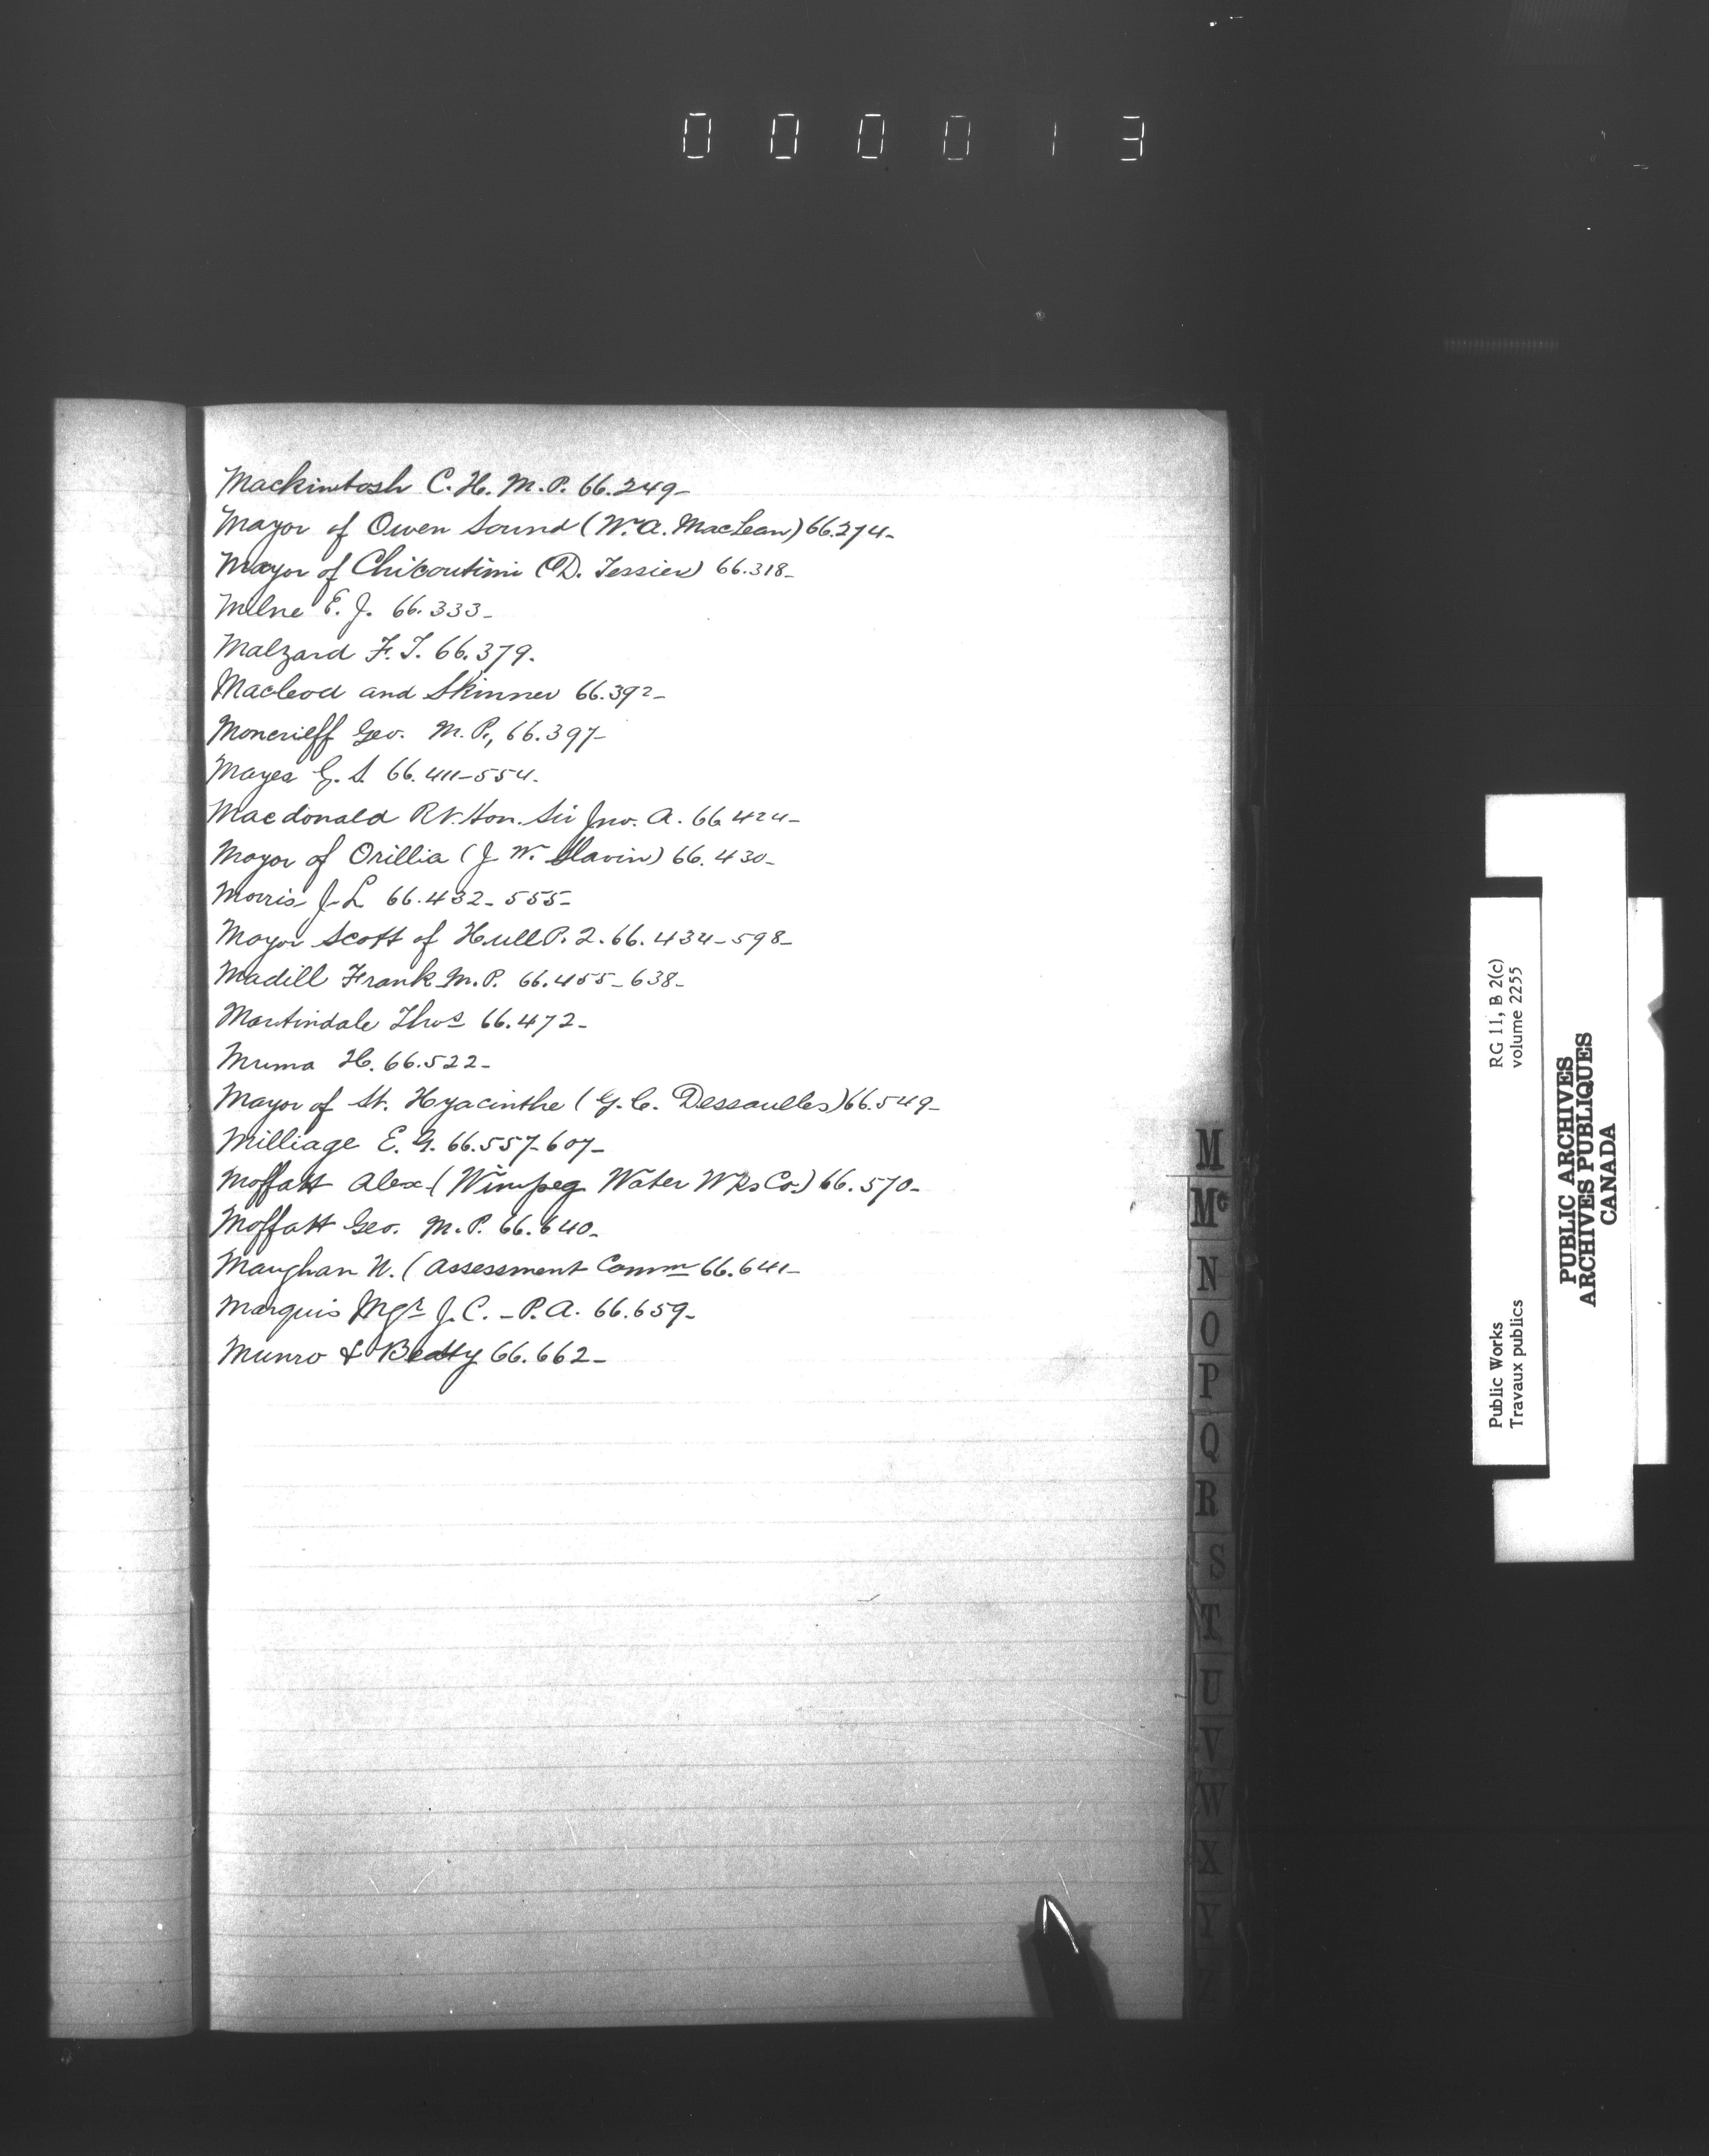 000013
Mackintosh C. H. M.P. 66.249-
Mayor of Owen Sound (W. A. MacLean) 66.274-
Mayor of Chicoutimi (O D. Tessier) 66.318-
Milne E. J. 66.333-
Malzard F. T. 66.379.
Macleod and Skinner 66.392-
Moncrieff Geo. M.P., 66.397-
Mayes G. S. 66.411-554.
Macdonald Rt. Hon. Sir Jno. A. 66 424-
Mayor of Orillia (J. W. Slavin) 66.430-
Morris J. L 66.432-555-
Mayor Scott of Hull P. 2. 66.434-598-
Madill Frank M.P. 66.455-638-
Martindale Thos 66.472-
Muma H. 66.522-
Mayor of St. Hyacinthe (G. C. Dessaulles) 66.549-
Milliage E. G. 66.557-607-
Moffatt Alex (Winipeg Water Wks Co.) 66.570-
Moffatt Geo. M.P. 66.640-
Maughan N. (Assessment Commr 66.641-
Marquis Mgr J. C. - P.A. 66.659-
Munro & Beatty 66.662-
M
Mc
N
O
P
Q
R
S
T
U
V
W
X
Y
Z
Public Works
Travaux publics
RG 11, B 2(c)
volume 2255
PUBLIC ARCHIVES
ARCHIVES PUBLIQUES
CANADA